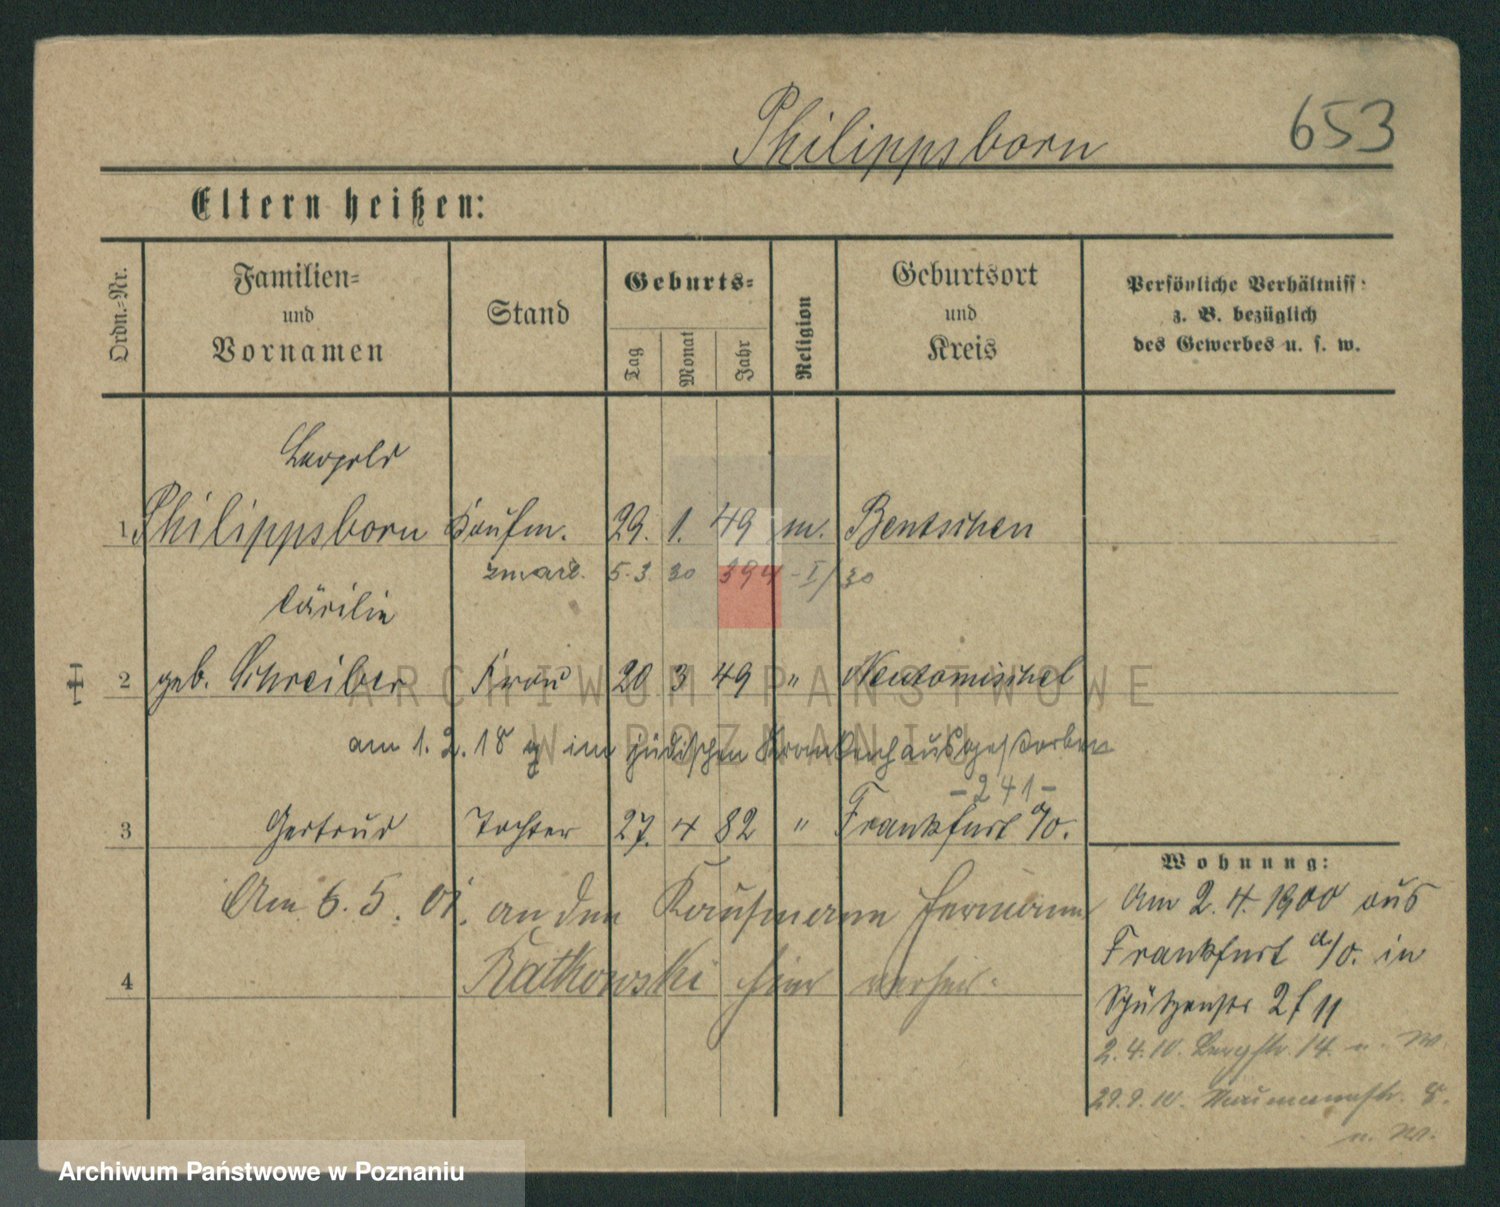 Philippsborn 653
Eltern heißen:
Ordn.=Nr. Familien= und Vornamen Stand Geburts= Tag Monat Jahr Religion Geburtsort und Kreis Persönliche Verhältniss: z. B. bezüglich des Gewerbes u. s. w.
Leopold
1 Philippsborn Kaufm. 29. 1. 49 m. Bentschen
5. 3. 30 394 - I/30
Cäcilie
2 geb. Schreiber Frau 20 3 49 " Neutomischel
am 1. 2. 18 im jüdischen Krankenhaus gestorben
- 241 -
3 Gertrud Tochter 27. 4 82 " Frankfurt a/O.
Am 6. 5. 01. an den Kaufmann Hermann
4 Ratkowski hier verheir.
Wohnung:
Am 2. 4. 1900 aus
Frankfurt a/O. in
Schützenstr 2f 11
2. 4. 10. Bergstr. 14. u. W.
29. 9. 10. Naumannstr. 8.
u. W.
ARCHIWUM PAŃSTWOWE
W POZNANIU
Archiwum Państwowe w Poznaniu